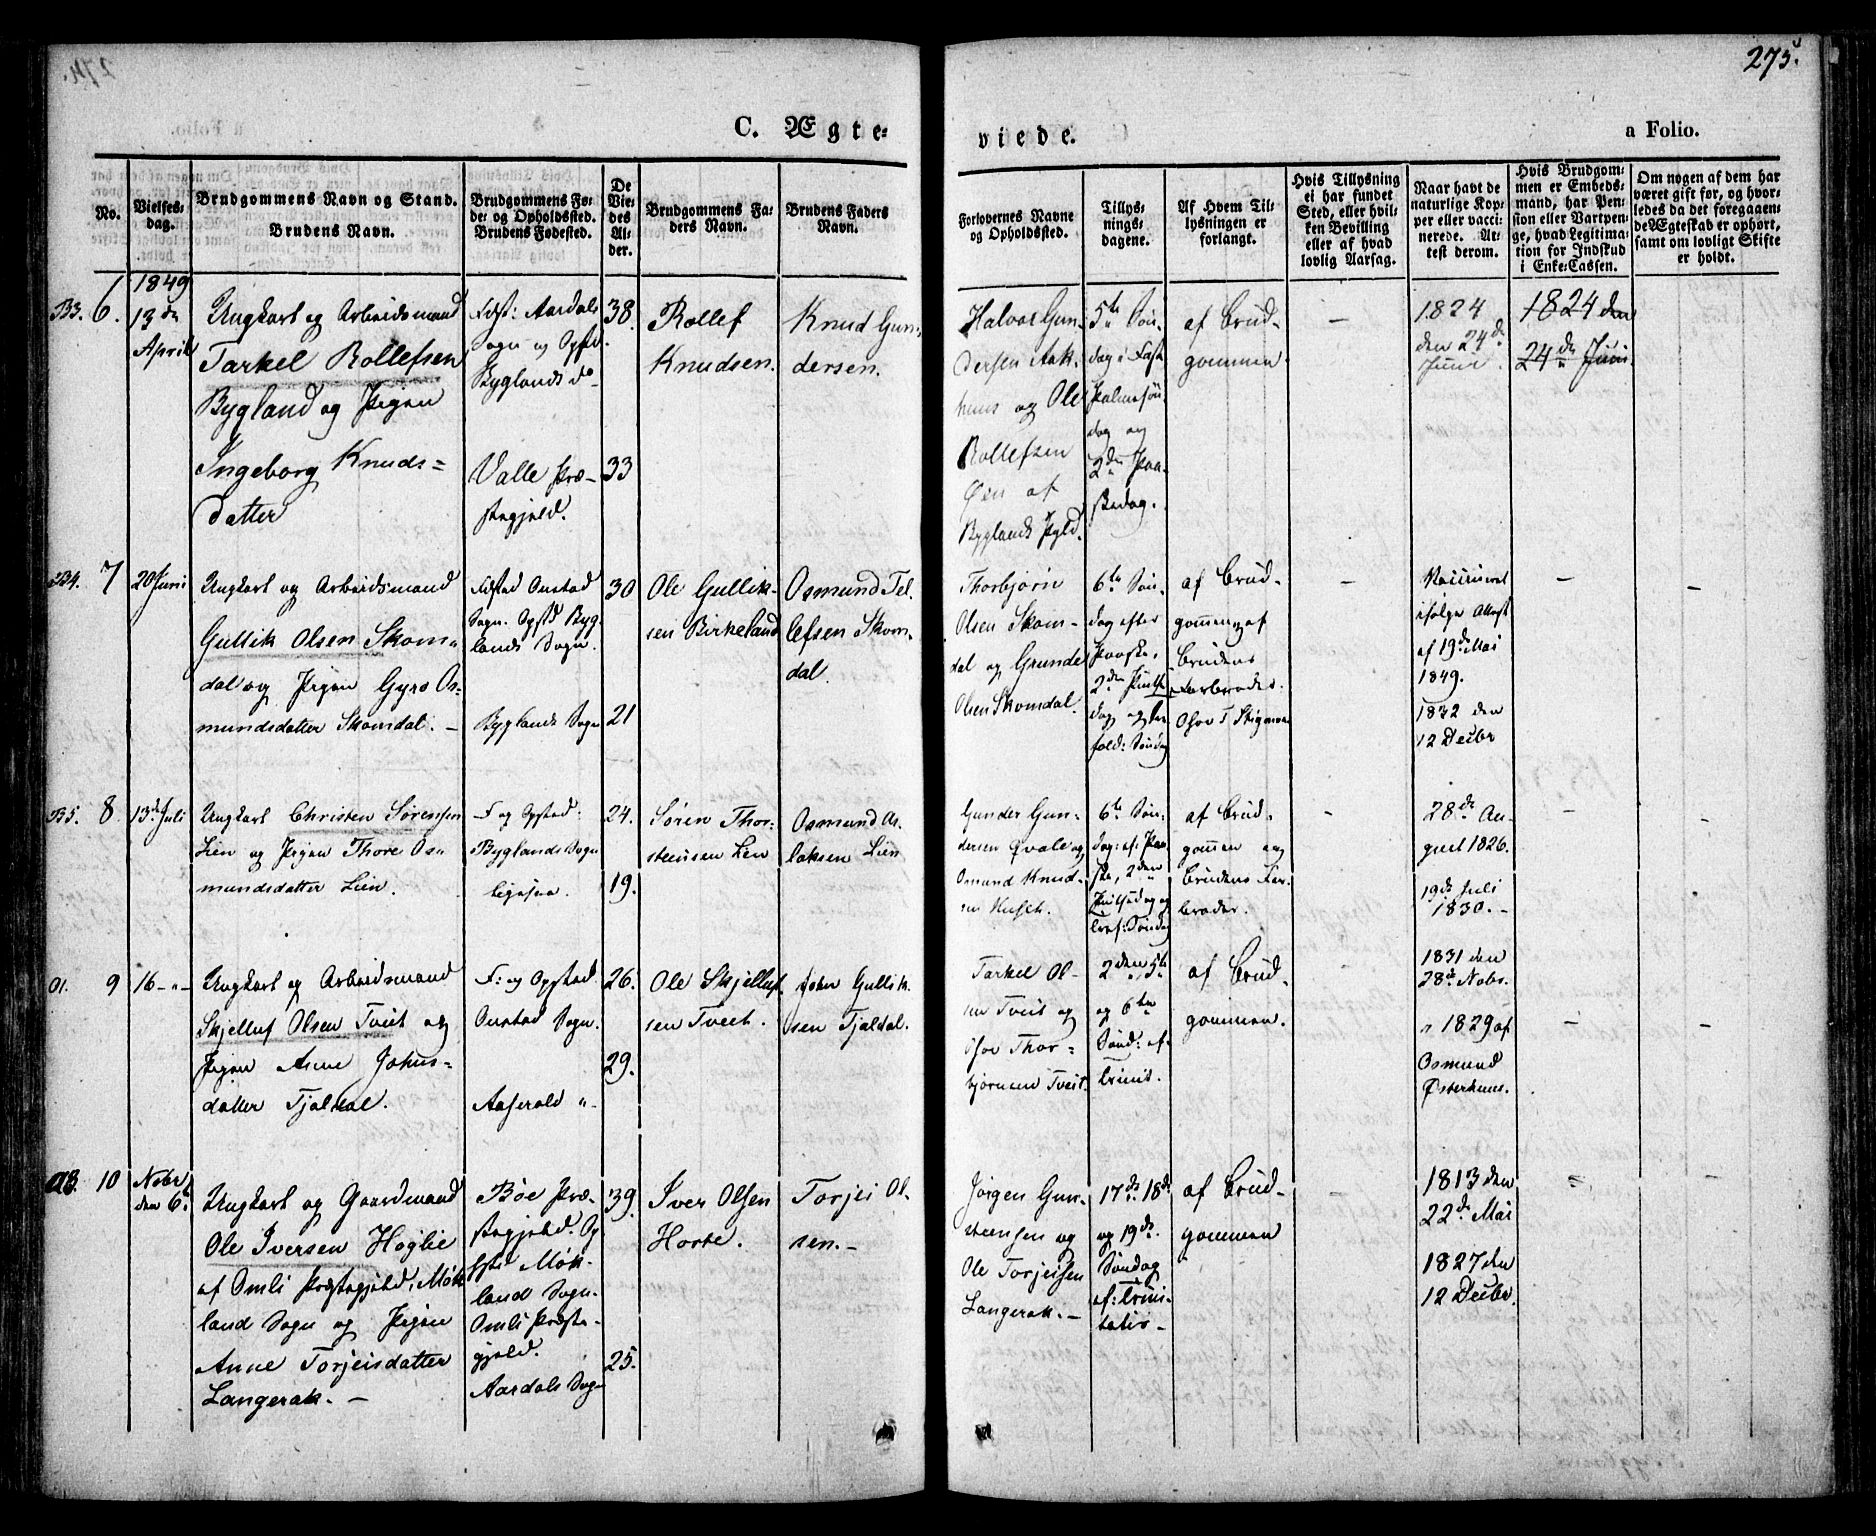 275.
C. Ægte-
viede.
a Folio.
No.
Vielses-
dag.
Brudgommens Navn og Stand.
Brudens Navn.
Brudgommens Fø-
de- og Opholdssted.
Brudens Fødested.
De
Vie-
des
Al-
der.
Brudgommens Fa-
ders Navn.
Brudens Faders
Navn.
Forlovernes Navne
og Opholdssted.
Tillys-
nings-
dagene.
Af Hvem Til-
lysningen er
forlangt.
Hvis Tillysning
ei har fundet
Sted, eller hvil-
ken Bevilling
eller af hvad
lovlig Aarsag.
Naar havt de
naturlige Kop-
per eller vacci-
nerede. At-
test derom.
Hvis Brudgom-
men er Embeds-
mand, har Pen-
sion eller Vartpen-
ge, hvad Legitima-
tion for Indskud
i Enke-Cassen.
Om nogen af dem har
været gift før, og hvor-
ledes da det foregaaen-
de Ægteskab er ophørt,
samt om lovligt Skifte
er holdt.
B3. 6.
1849
13de
April
Ungkarl og Arbeidsmand
Tarkel Rollefsen
Bygland og Pigen
Ingeborg Knuds=
datter
Fdst: Aardals
Sogn og Opst
Byglands do
Valle Præ-
stegjeld.
38.
33
Rollef
Knudsen.
Knud Gun-
dersen.
Halvor Gun-
dersen Aak-
huus og Ole
Rollefsen
Øen af
Byglands Pgld.
5te Søn-
dag i Fast
Palmesøn-
dag og
2den Paa-
skedag.
af Brud-
gommen.
—
1824
den 24de
Juni.
1824 den
24de Juni.
B4. 7
20 Juni
Ungkarl og Arbeidsmand
Gullik Olsen Skom-
dal og Pigen Gyro Os-
mundsdatter Skomdal. —
Fdsted Austad
Sogn. Opstd Byg-
lands Sogn.
Byglands Sogn
30
21
Ole Gullik-
sen Birkeland
Osmund Tel-
lefsen Skom-
dal.
Thorbjørn
Olsen Skom-
dal og Grunde
Olsen Skomdal.
6te Søn-
dag efter
Paaske,
2den Pintse
dag og
Søndag
af Brud-
gommen og af
Brudens
Farbroder.
—
Vaccineret
ifølge Attest
af 19de Mai
1849.
1832 den
12 Decbr
—
—
B5. 8.
13de Juli
Ungkarl Christen Sørensen
Lien og Pigen Thore Os-
mundsdatter Lien.
F og Opsted:
Byglands Sogn
ligesaa.
24.
19.
Søren Thor-
steinsen Lien
Osmund As-
laksen Lien
Gunder Gun-
dersen Qvale og
Osmund Knud-
sen
6te Søn-
dag: ef: Paa-
ske, 2den
Pintsedag og
Søndag
af Brud-
gommen og
Brudens Far-
broder.
28de Au-
gust 1826.
19de Juli
1830. —
—
—
Ol. 9
16 - " -
Ungkarl og Arbeidsmand
Skjelluf Olsen Tveit og
Pigen Anne Johns-
datter Tjaldal.
F: og Opsted
Austad Sogn.
Aaserald "
26.
29.
Ole Skjelluf-
sen Tveit.
John Gullik-
sen Tjaldal.
Tarkel Ol-
sen Tveit og
Thor-
bjørnsen Tveit.
2den, 5te
og 6te
Sønd: ef-
trinit.
af Brud-
gommen.
—
1831 den
28de Novbr.
" 1829 af
Osmund
Østerhuus.
—
—
10
Nobr
den 6te
Ungkarl og Gaardmand
Ole Iversen Høglie
af Omli Præstegjeld, Møk-
land Sogn og Pigen
Anne Torjeisdatter
Langerak. —
Bøe Præ-
stegjeld. Op-
Møk-
land Sogn.
Omli Præste-
gjeld.
Aardals Sogn
39.
25.
Iver Olsen
Horte.
Torjei Ol-
sen. —
Jørgen Gun-
steinsen og
Ole Torjeisen
Langerak. —
17de, 18de
og 19de
Søndag
ef: Trini-
tatis —
af Brud-
gommen
—
1813 den
22de Mai
1827 den
12 Decbr.
—
—